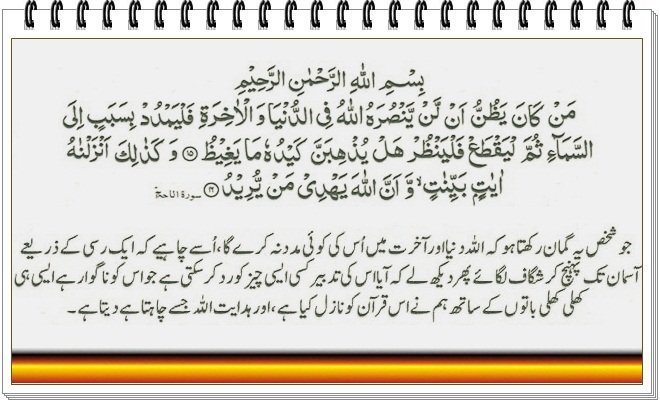 بِسْمِ اللهِ الرَّحْمٰنِ الرَّحِیْمِ
مَنْ كَانَ یَظُنُّ اَنْ لَّنْ یَّنْصُرَهُ اللهُ فِی الدُّنْیَا وَ الْاٰخِرَةِ فَلْیَمْدُدْ بِسَبَبٍ اِلَی
السَّمَآءِ ثُمَّ لْیَقْطَعْ فَلْیَنْظُرْ هَلْ یُذْهِبَنَّ كَیْدُهٗ مَا یَغِیْظُ ﴿۱۵﴾ وَ كَذٰلِكَ اَنْزَلْنٰهُ
اٰیٰتٍۭ بَیِّنٰتٍ ۙ وَّ اَنَّ اللهَ یَهْدِیْ مَنْ یُّرِیْدُ ﴿۱۶﴾ سورة الحج
جو شخص یہ گمان رکھتا ہو کہ اللہ دنیا اور آخرت میں اُس کی کوئی مدد نہ کرے گا، اُسے چاہیے کہ ایک رسی کے ذریعے
آسمان تک پہنچ کر شگاف لگائے پھر دیکھ لے کہ آیا اس کی تدبیر کسی ایسی چیز کو رد کر سکتی ہے جو اس کو ناگوار ہے ایسی ہی
کھلی کھلی باتوں کے ساتھ ہم نے اس قرآن کو نازل کیا ہے، اور ہدایت اللہ جسے چاہتا ہے دیتا ہے۔